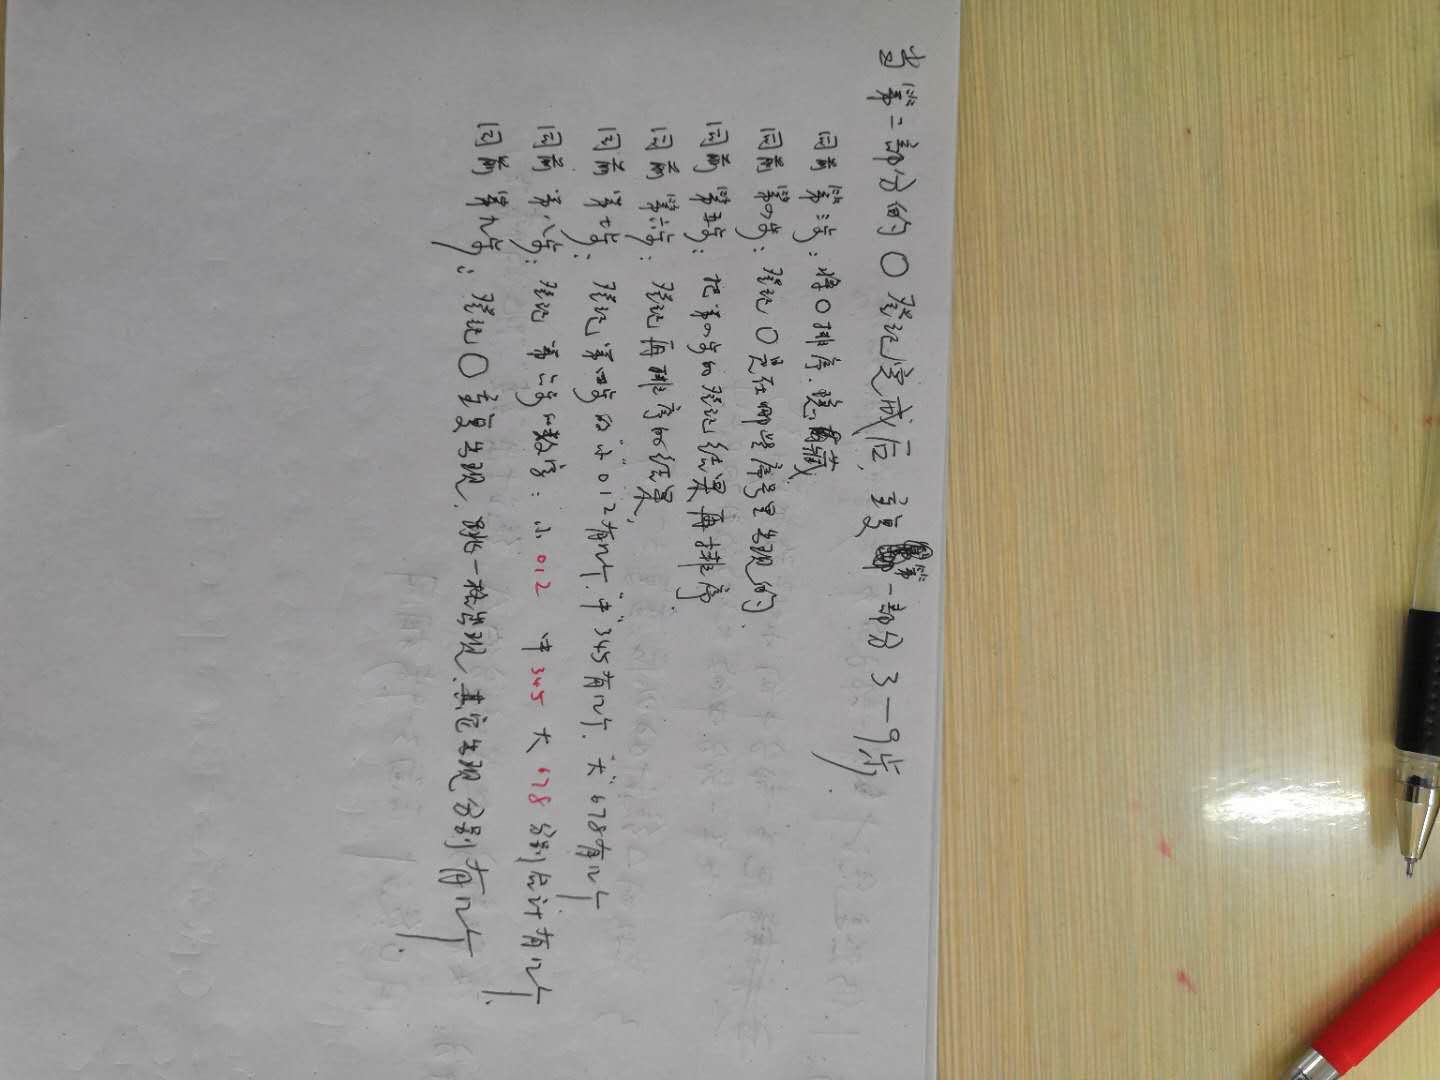 当第二部分的〇登记完成后,重复第一部分3—9步
同前第三步:将〇排序.隐藏.
同前第四步:登记〇是在哪些序号里出现的.
同前第五步:把第四步的登记结果再排序.
同前第六步:登记再排序的结果,
同前第七步:登记第四步的"小"012有几个.中"345有几个."大"678有几个
同前第八步:登记第六步的数字:小012 中345 大678分别合计有几个.
同前第九步:登记〇重复出现.跳一格出现.其它出现分别有几个.